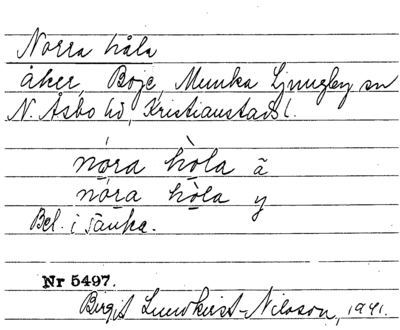 Norra håla
åker, Boje, Munka Ljungby sn
N. Åsbo hd, Kristianstads l.
nóra hòla ã
nóra hòla y
Bel. i sänka.
Nr 5497.
Birgit Lundkvist-Nilsson, 1941.